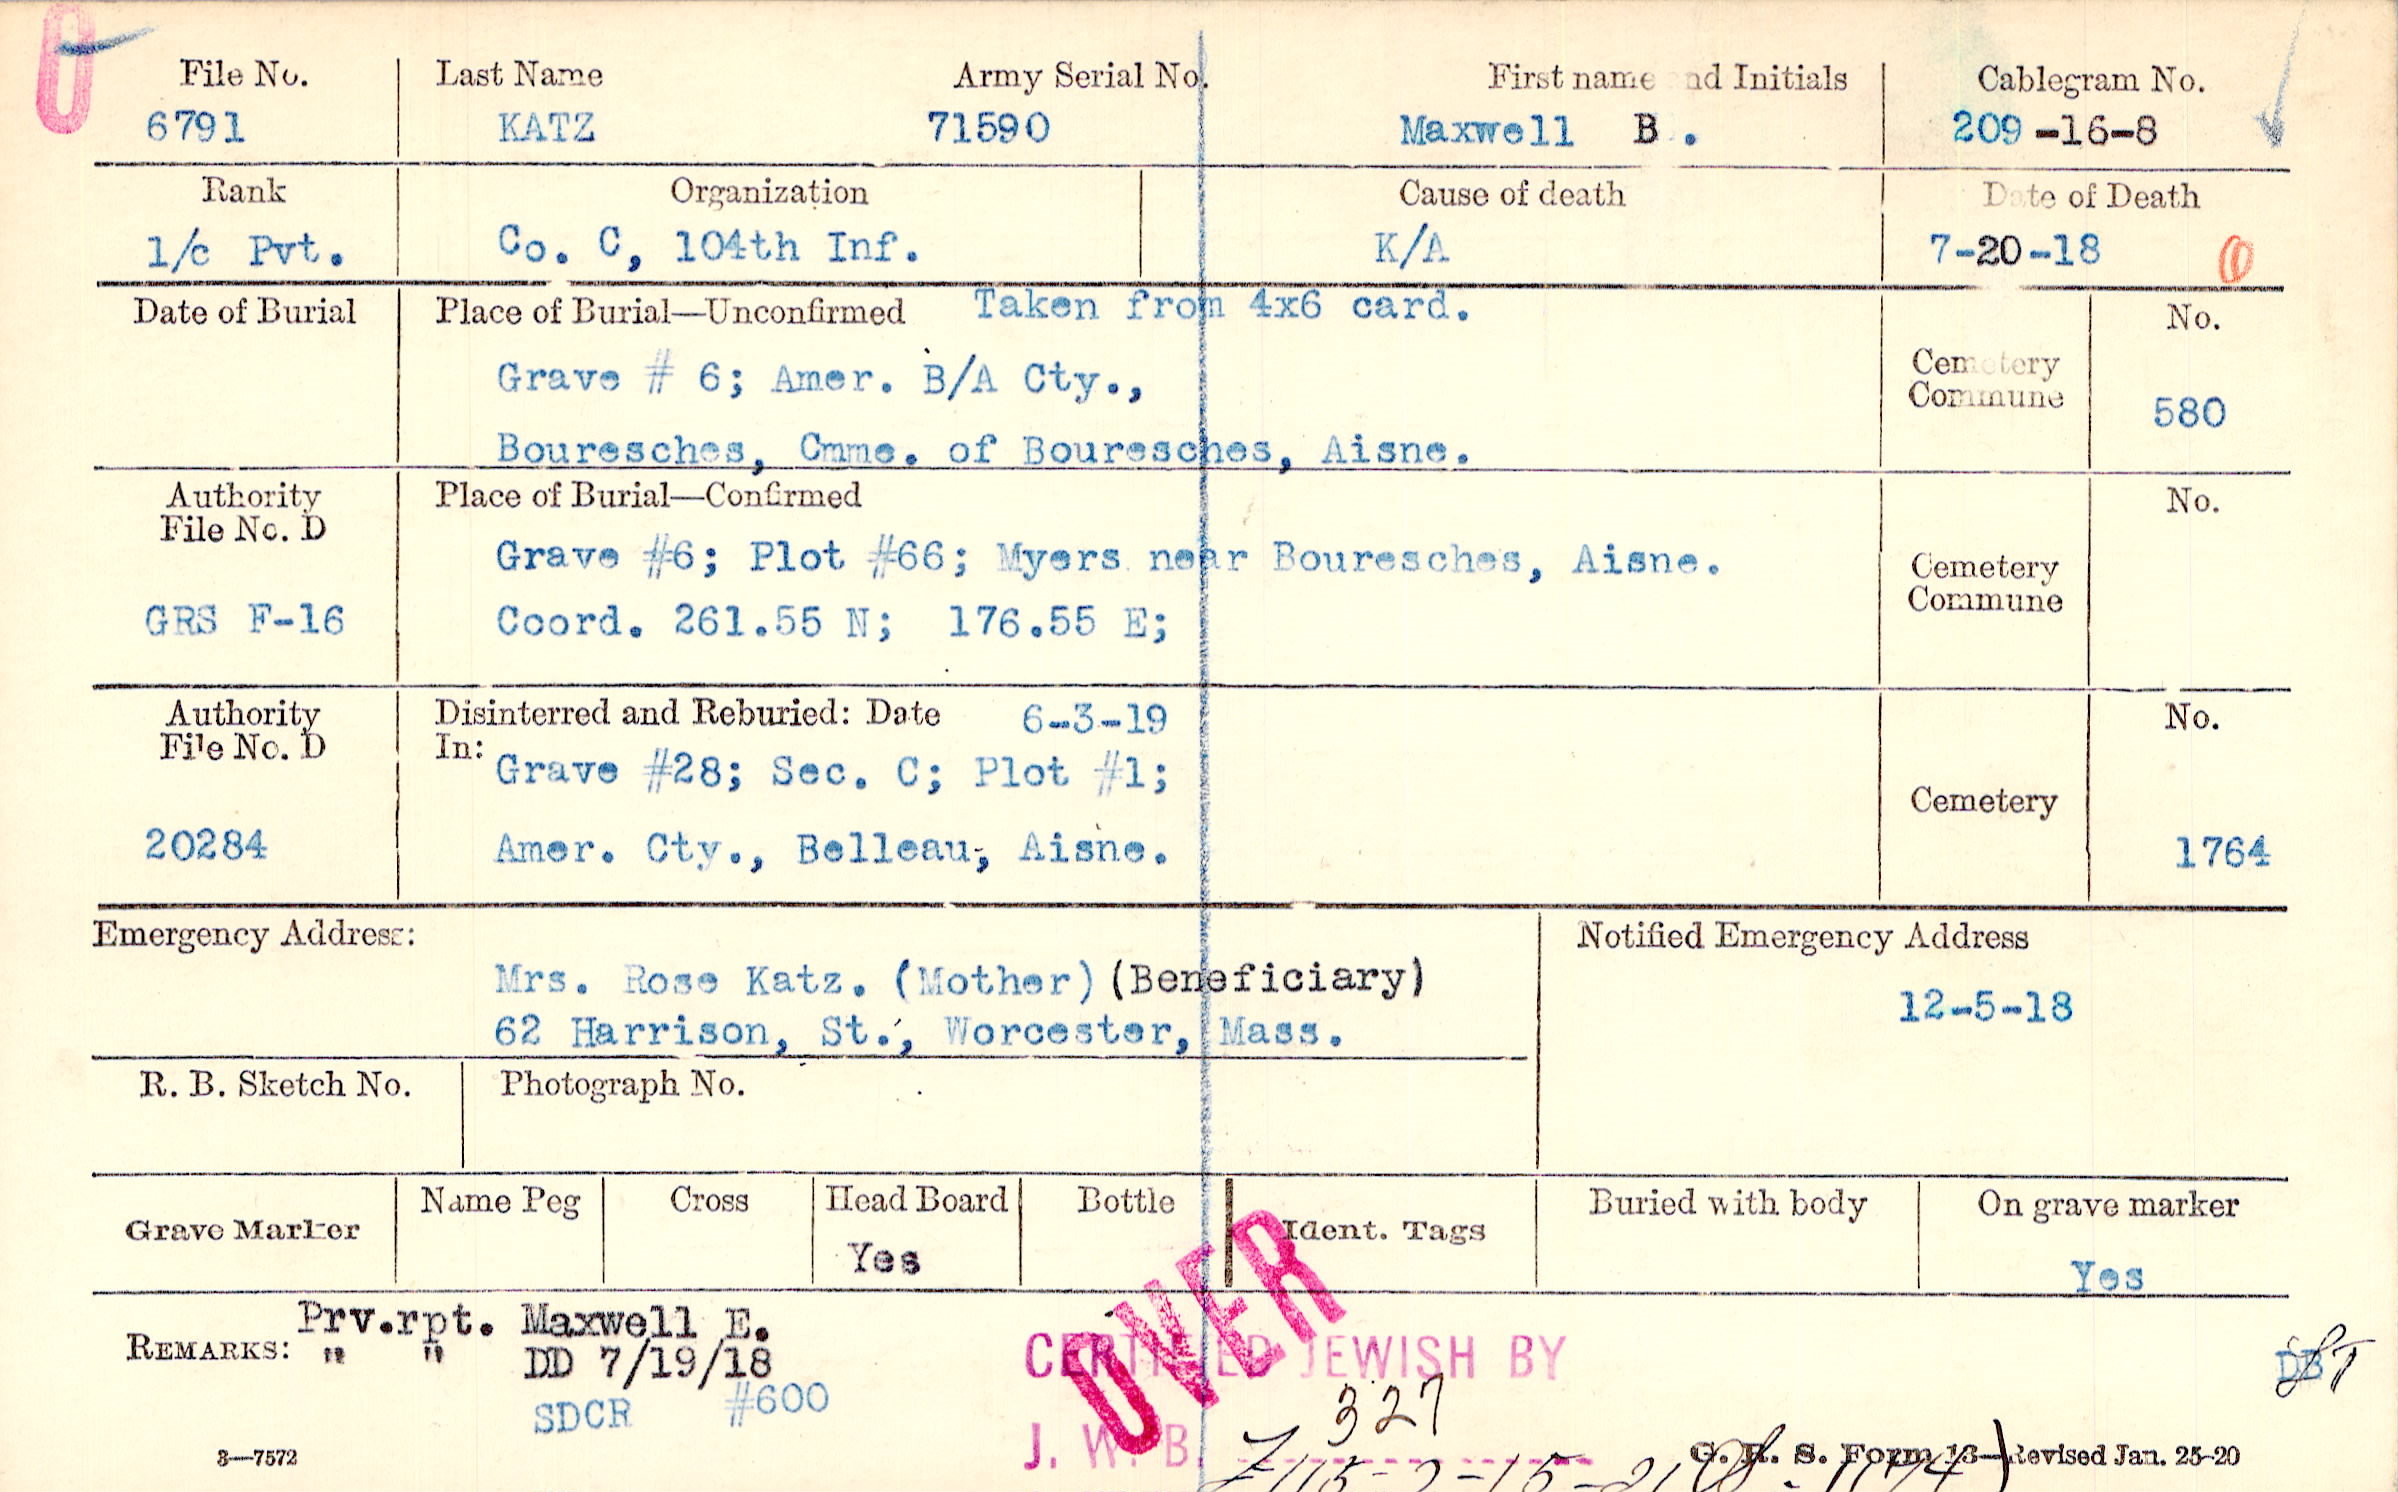 O
File No. Last Name Army Serial No. First name and Initials Cablegram No.
6791 KATZ 71590 Maxwell B. 209-16-8
Rank Organization Cause of death Date of Death
1/c Pvt. Co. C, 104th Inf. K/A 7-20-18
Date of Burial Place of Burial—Unconfirmed Taken from 4x6 card. No.
Grave # 6; Amer. B/A Cty., Cemetery
Commune 580
Bouresches, Cmme. of Bouresches, Aisne.
Authority Place of Burial—Confirmed No.
File No. D
Grave #6; Plot #66; Myers near Bouresches, Aisne. Cemetery
Commune
GRS F-16 Coord. 261.55 N; 176.55 E;
Authority Disinterred and Reburied: Date 6-3-19 No.
File No. D In: Grave #28; Sec. C; Plot #1;
Cemetery
20284 Amer. Cty., Belleau, Aisne. 1764
Emergency Address: Notified Emergency Address
Mrs. Rose Katz. (Mother) (Beneficiary)
12-5-18
62 Harrison, St., Worcester, Mass.
R. B. Sketch No. Photograph No.
Grave Marker Name Peg Cross Head Board Bottle Ident. Tags Buried with body On grave marker
Yes Yes
Prv.rpt. Maxwell E.
REMARKS: " " DD 7/19/18
SDCR #600
OVER
CERTIFIED JEWISH BY
327
J. W. B.
3—7572 G. R. S. Form 13—Revised Jan. 25-20